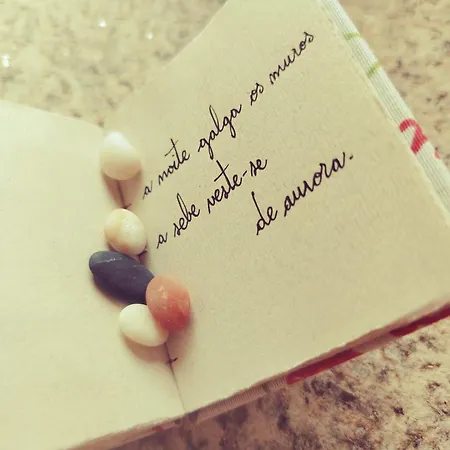 a noite galga os muros
a sebe veste-se
de aurora.